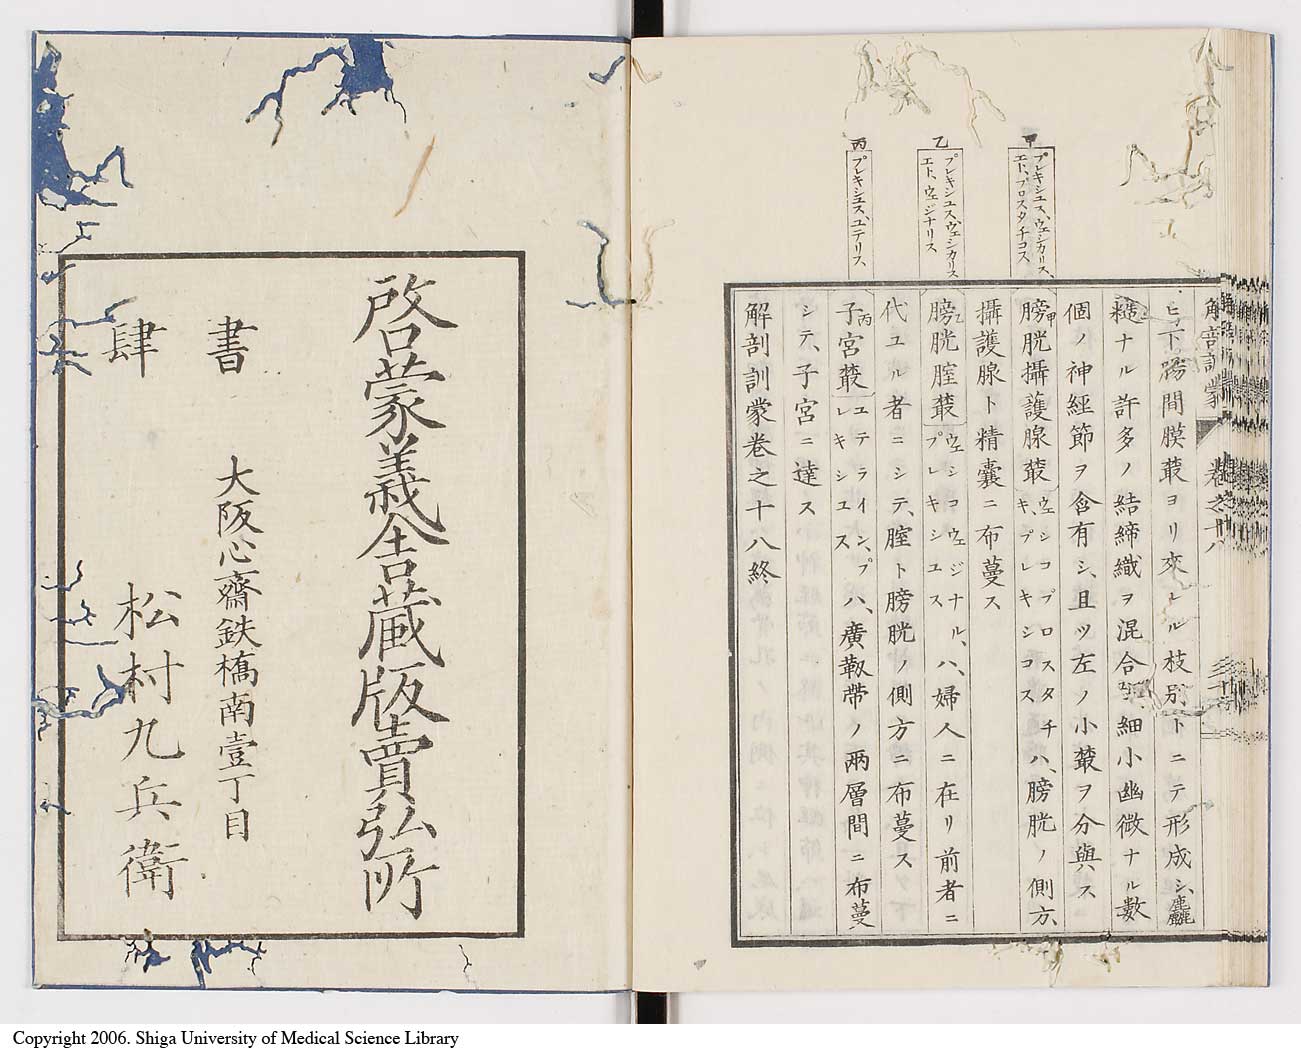 甲
プレキシユス、ウェシカリス、
エト、プロスタチコス
乙
プレキシユス、ウェシカリス
エト、ウェジナリス
丙
プレキシユス、ユテリス
解剖訓蒙
卷之十八
ヒ下膓間膜叢ヨリ來レル枝別トニテ形成シ、麤
糙ナル許多ノ結締織ヲ混合細小幽微ナル數
個ノ神經節ヲ含有シ、且ツ左ノ小叢ヲ分與ス
甲膀胱攝護腺叢ウェシコプロスタチ
キ、プレキシコスハ、膀胱ノ側方、
攝護腺ト精囊ニ布蔓ス
乙膀胱腟叢ウェシコウェジナル、
プレキシユスハ、婦人ニ在リ前者ニ
代ユル者ニシテ、腟ト膀胱ノ側方ニ布蔓ス
丙子宮叢ユテライン、プ
レキシユスハ、廣靱帶ノ兩層間ニ布蔓
シテ、子宮ニ達ス
解剖訓蒙卷之十八終
啓蒙義舎藏版賣弘所
書
大阪心齋鉄橋南壹丁目
肆
松村九兵衛
Copyright 2006. Shiga University of Medical Science Library